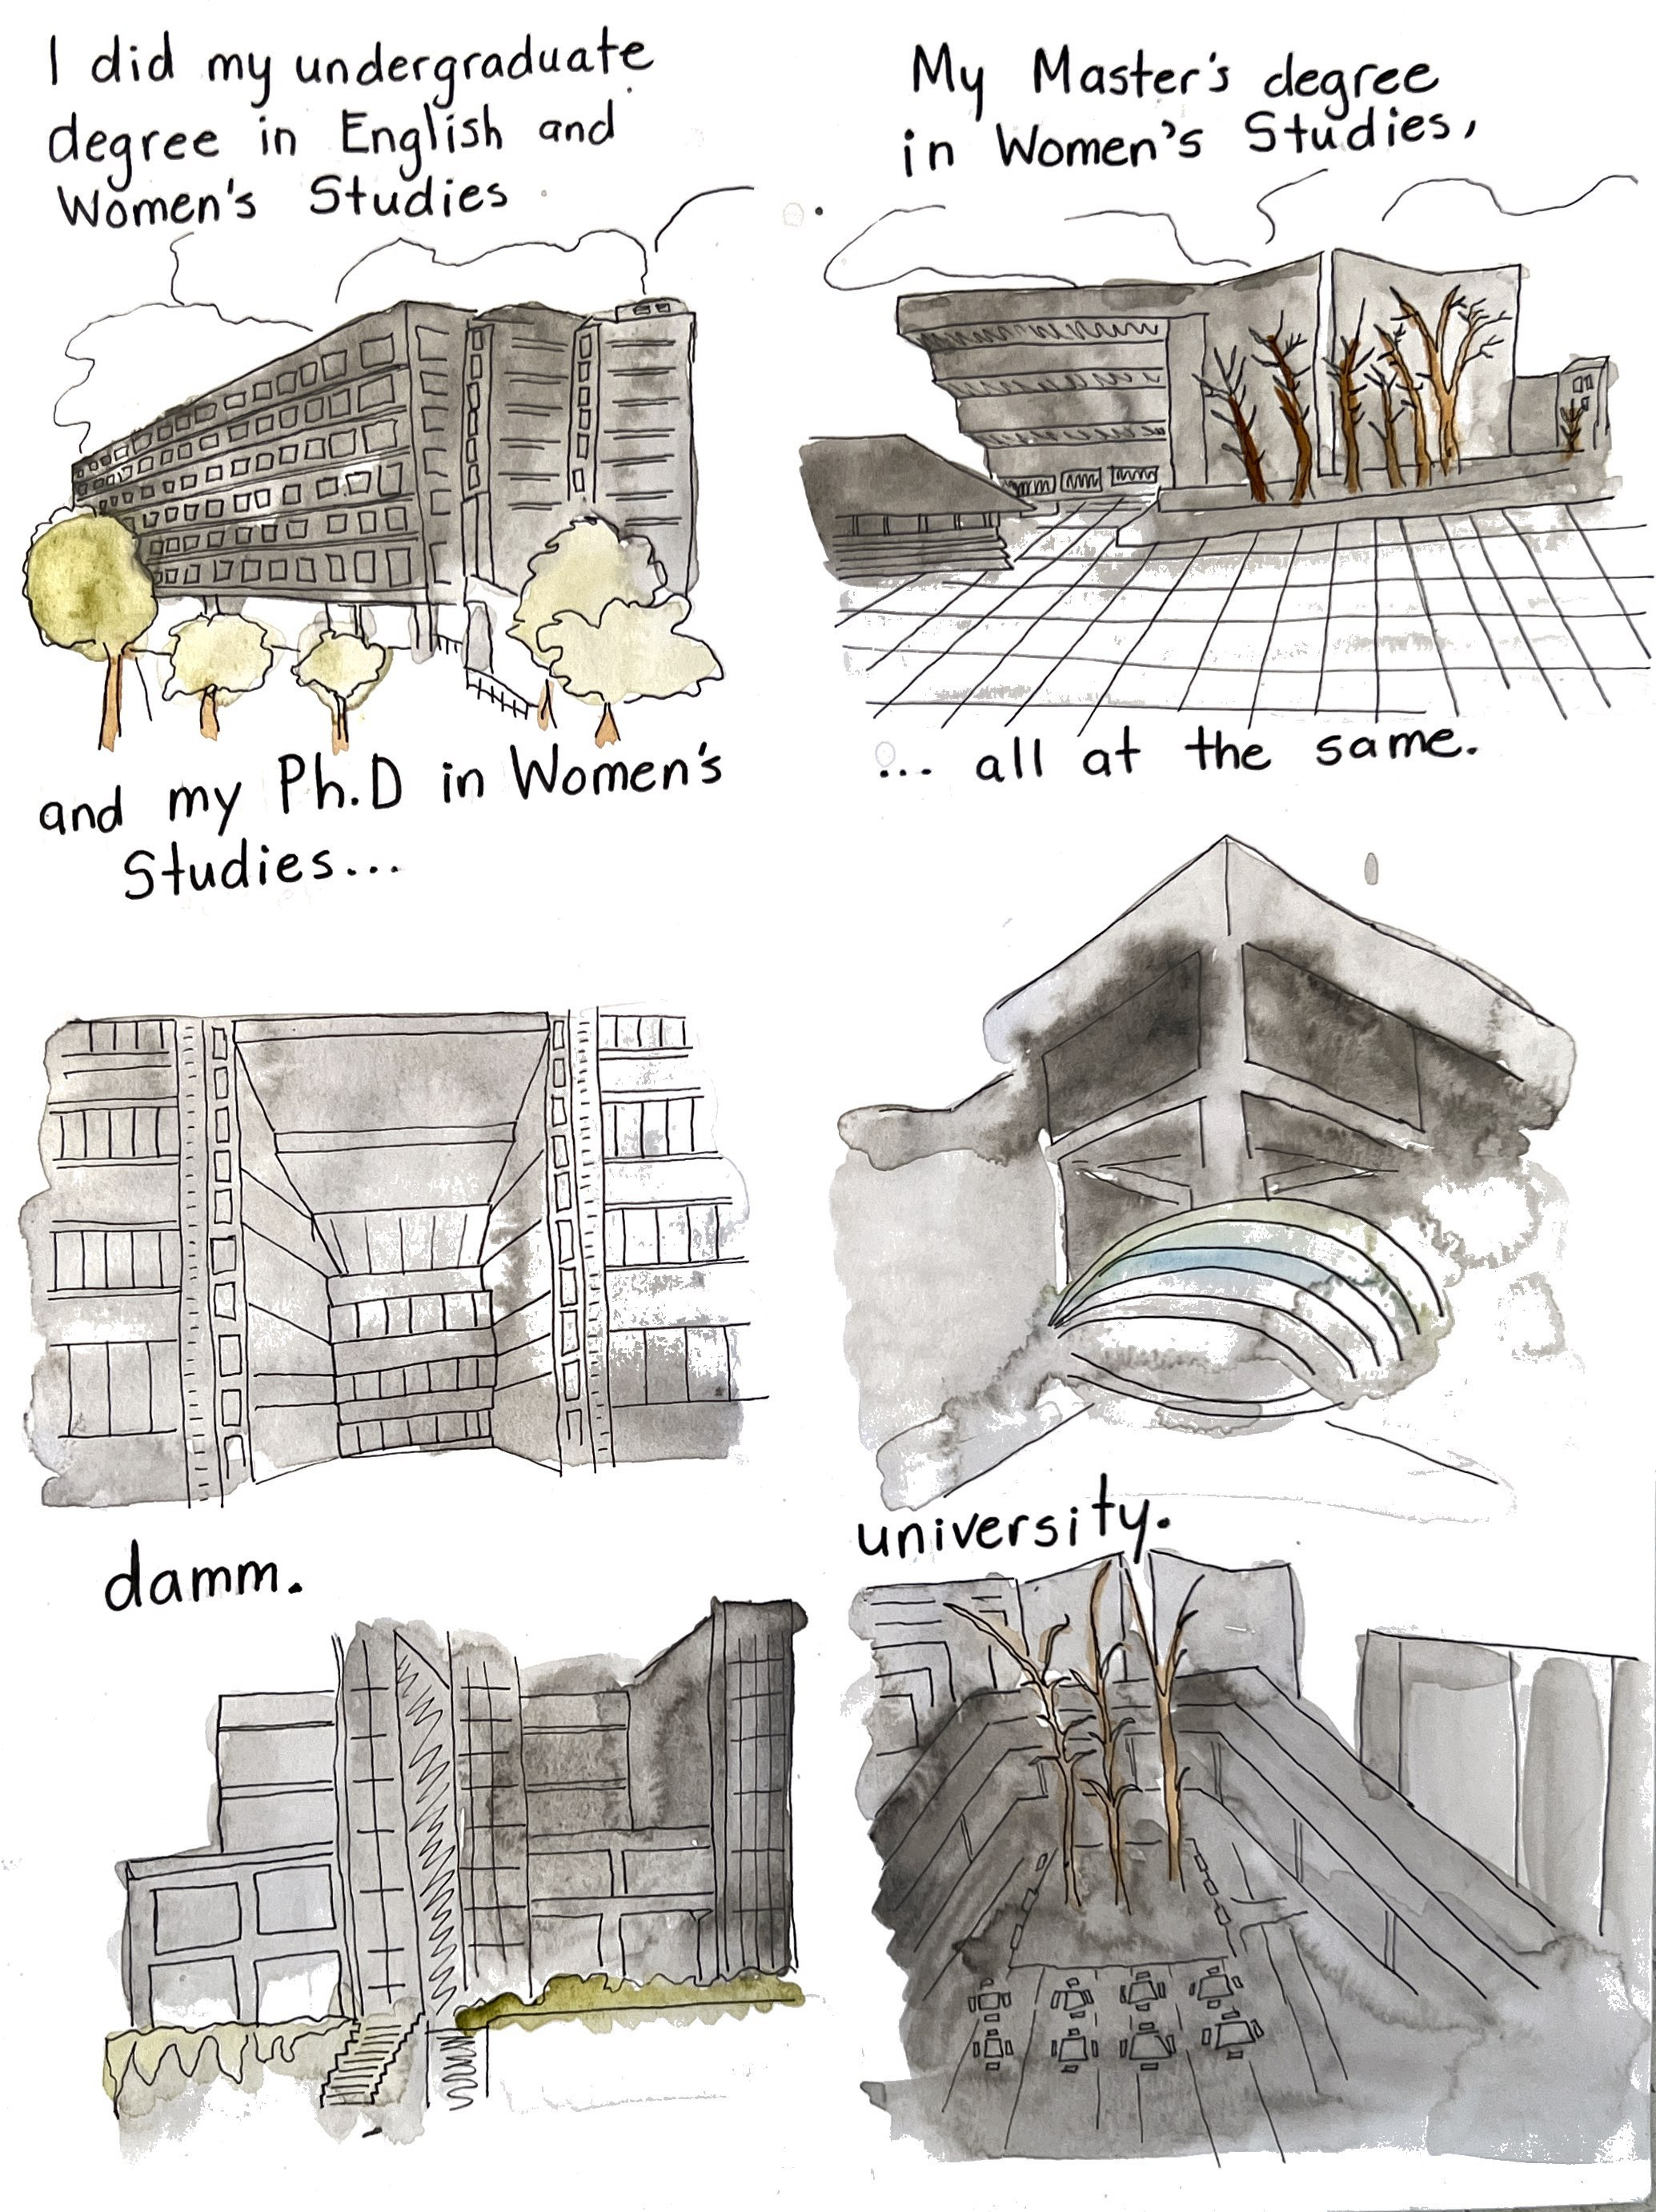 I did my undergraduate
degree in English and
Women's Studies
My Master's degree
in Women's Studies,
and my Ph.D in Women's
Studies...
... all at the same.
damm.
university.